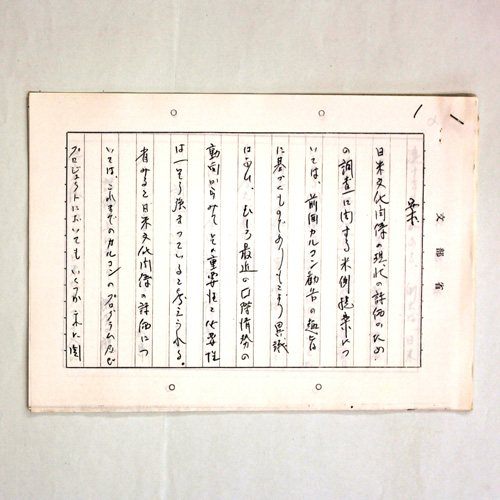 文部省
案
日米文化関係の現状の評価のため
の調査に関する米側提案につ
いては、前回カルコン勧告の趣旨
に基づくものでありもとより異議
はなく、むしろ最近の国際情勢の
動向からみてその重要性と必要性
は一そう強まっていると考えられる。
省みると日米文化関係の評価につ
いては、これまでのカルコンのプログラム及び
プロジェクトにおいてもいくつか これに関